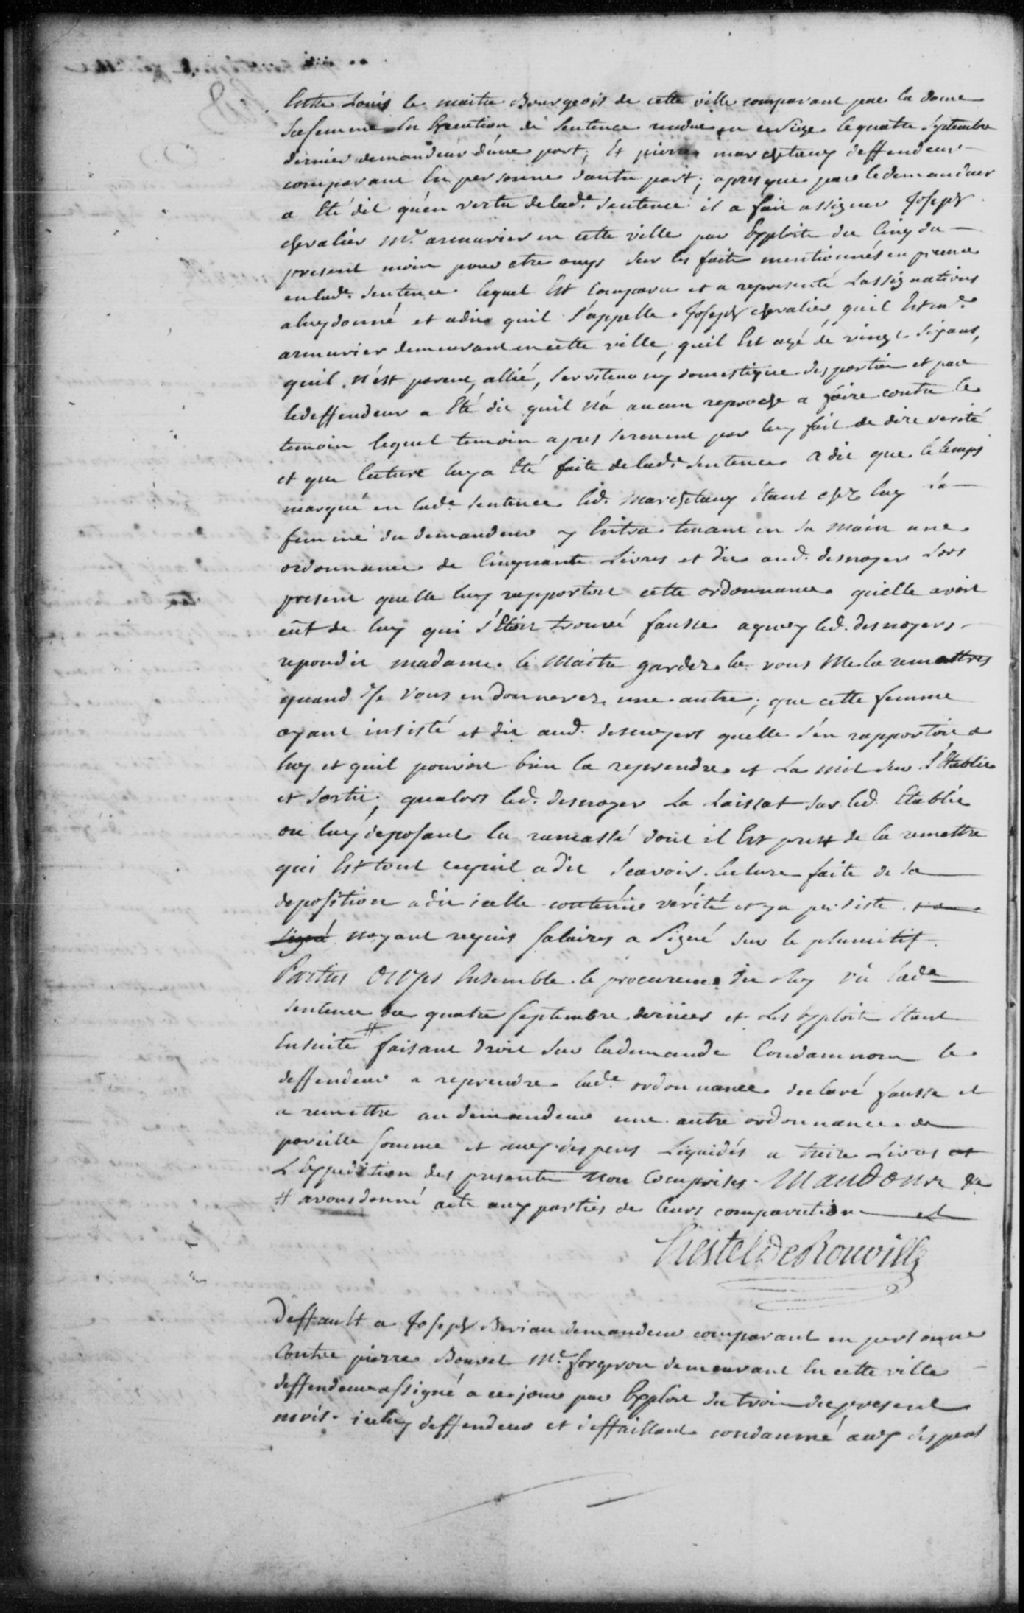 Entre Louis le maitre Bourgeois de cette ville comparant par la dame
sa femme En Execution de Sentence rendue en ce siege le quatre septembre
dernier demandeur d'une part, Et pierre marchetauy deffendeur
comparant En personne d'autre part; apres que par le demandeur
a Eté dit qu'en vertu de lade Sentence il a fait assigner Joseph
chevalier Me armurier en cette ville par Exploit du Cinq du
present mois pour etre ouys sur les faits mentionnés en preuve
en lade Sentence lequel Est Comparu et a representé Lassignations
a luy donné et a dit quil s'appelle Joseph chevalier quil Est me
armurier demeurant en cette ville, quil Est agé de vingt six ans,
quil n'est parent, allié, serviteur ny domestique des parties et par
le deffendeur a Eté dit quil n'a aucun reproche a faire contre le
temoin lequel temoin apres serment par luy fait de dire verité
et que lecture luy a Eté faite de lade Sentence a dit que le temps
marqué en lade sentence led. marchetauy étant chez luy la
femme du demandeur y Entra tenant en sa main une
ordonnance de Cinquante Livres et dit aud. desnoyer Lors
present quelle luy rapportoit cette ordonnance quelle avoit
eüt de luy qui s'étoit trouvé fausse a quoy led. desnoyers
repondit madame le Maitre gardez la vous Me la remettres
quand Je vous en donneres une autre; que cette femme
ayant insisté et dit aud. desnoyers quelle s'en rapportoit a
luy et quil pouvoit bien la reprendre et La mit sur l'Etablie
et sortit; qualors led. desnoyer La Laissat sur led Etablie
ou luy deposant la ramassé dont il Est prest de la remettre
qui Est tout ce quil a dit scavoir. Lecture faite de sa
deposition a dit icelle contenir verité et y a persisté et a
signé n'ayant requis salaires a signé sur le plumitif.
Parties Ouyes Ensemble le procureur du Roy vû lade
sentence du quatre septembre dernier et Les Exploit Etant
Ensuite # faisant droit sur la demande Condamnons le
deffendeur a reprendre lade ordonnance declaré fausse et
a remettre au demandeur une autre ordonnance de
pareille somme et aux depens Liquidés a treize Livres et
L'Expedition des presente non Comprises. Mandons &a
# avons donné acte aux parties de leurs comparution et
Hertel De Rouville
Deffault a Joseph Beriau demandeur comparant en personne
Contre pierre Bouvet Me forgeron demeurant En cette ville
deffendeur assigné a ce jour par Exploit du trois du present
mois. iceluy deffendeur et deffaillant condamné aux depens